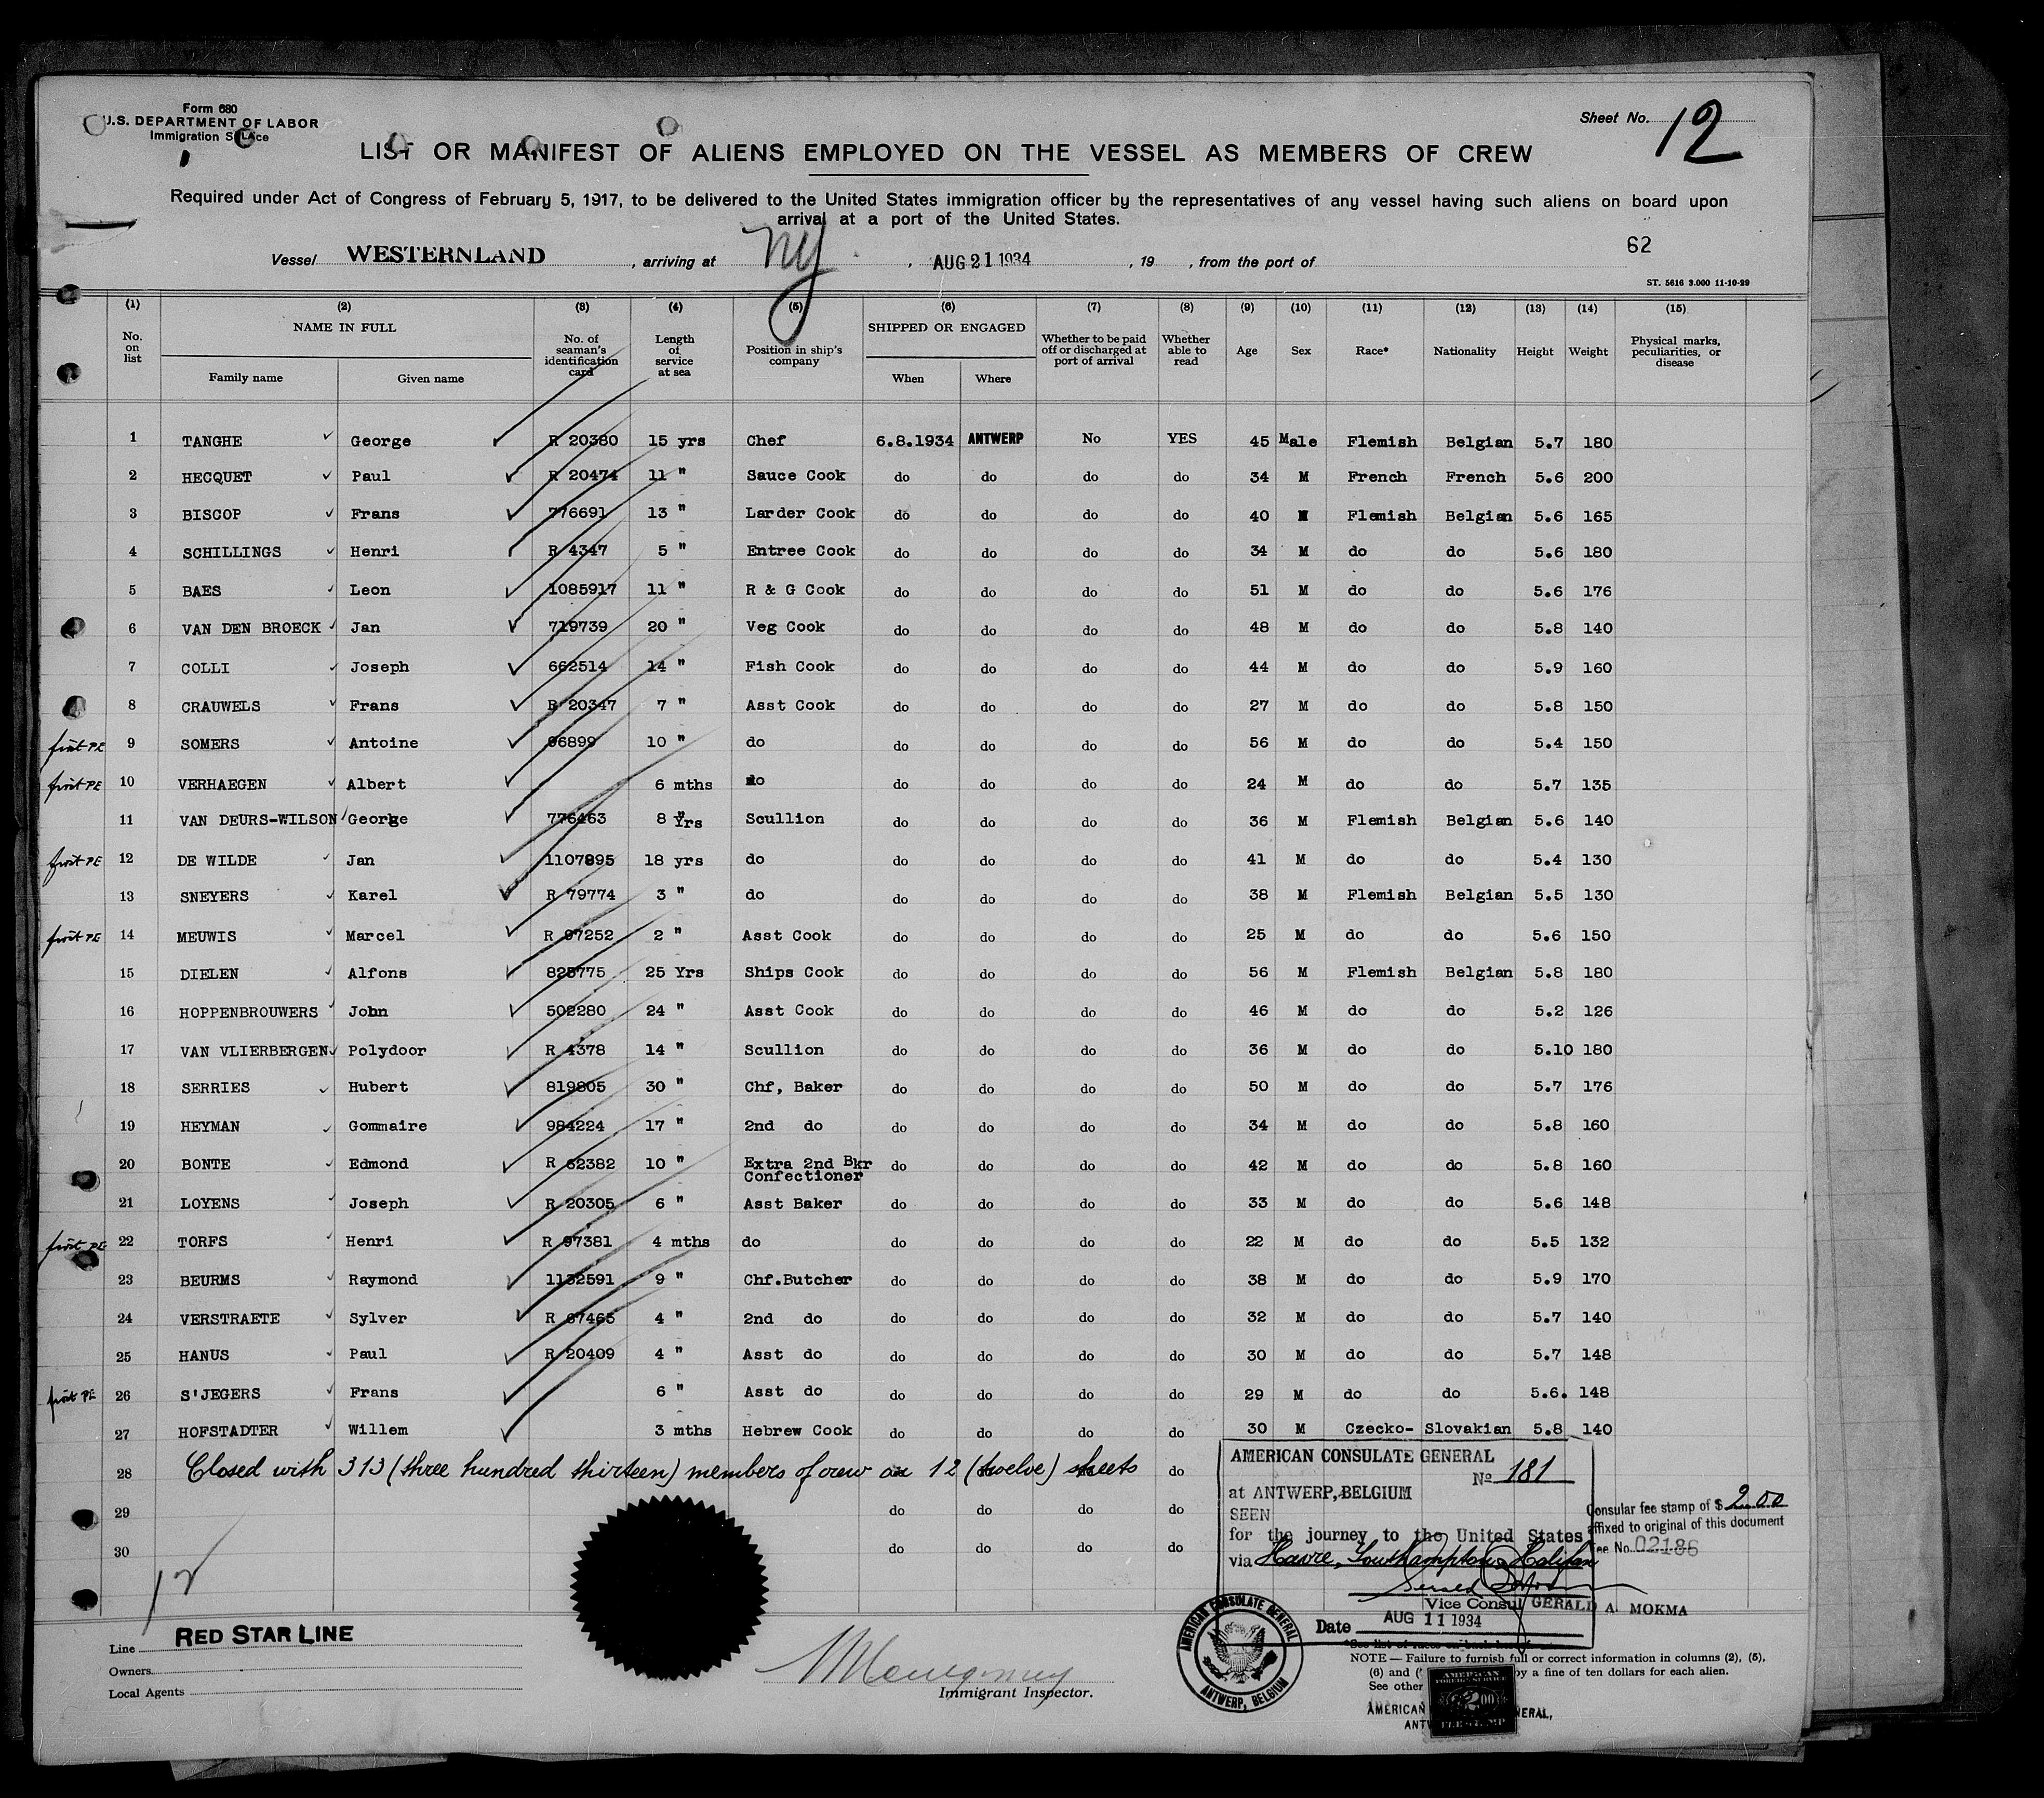 Form 680
U.S. DEPARTMENT OF LABOR
Immigration
Sheet No. 12
LIST OR MANIFEST OF ALIENS EMPLOYED ON THE VESSEL AS MEMBERS OF CREW
Required under Act of Congress of February 5, 1917, to be delivered to the United States immigration officer by the representatives of any vessel having such aliens on board upon
arrival at a port of the United States.
62
Vessel WESTERNLAND, arriving at NY, AUG 21 1934, 19 , from the port of
ST. 5616 3.000 11-10-29
(1) (2) (3) (4) (5) (6) (7) (8) (9) (10) (11) (12) (13) (14) (15)
No. on list NAME IN FULL Family name Given name No. of seaman's identification card Length of service at sea Position in ship's company SHIPPED OR ENGAGED When Where Whether to be paid off or discharged at port of arrival Whether able to read Age Sex Race* Nationality Height Weight Physical marks, peculiarities, or disease
1 TANGHE George R 20380 15 yrs Chef 6.8.1934 ANTWERP No YES 45 Male Flemish Belgian 5.7 180
2 HECQUET Paul R 20474 11 " Sauce Cook do do do do 34 M French French 5.6 200
3 BISCOP Frans 776691 13 " Larder Cook do do do do 40 M Flemish Belgian 5.6 165
4 SCHILLINGS Henri R 4347 5 " Entree Cook do do do do 34 M do do 5.6 180
5 BAES Leon 1085917 11 " R & G Cook do do do do 51 M do do 5.6 176
6 VAN DEN BROECK Jan 719739 20 " Veg Cook do do do do 48 M do do 5.8 140
7 COLLI Joseph 662514 14 " Fish Cook do do do do 44 M do do 5.9 160
8 CRAUWELS Frans R 20347 7 " Asst Cook do do do do 27 M do do 5.8 150
first PE 9 SOMERS Antoine 96899 10 " do do do do do 56 M do do 5.4 150
first PE 10 VERHAEGEN Albert 6 mths do do do do do 24 M do do 5.7 135
11 VAN DEURS-WILSON George 776463 8 Yrs Scullion do do do do 36 M Flemish Belgian 5.6 140
first PE 12 DE WILDE Jan 1107895 18 yrs do do do do do 41 M do do 5.4 130
13 SNEYERS Karel R 79774 3 " do do do do do 38 M Flemish Belgian 5.5 130
first PE 14 MEUWIS Marcel R 97252 2 " Asst Cook do do do do 25 M do do 5.6 150
15 DIELEN Alfons 825775 25 Yrs Ships Cook do do do do 56 M Flemish Belgian 5.8 180
16 HOPPENBROUWERS John 502280 24 " Asst Cook do do do do 46 M do do 5.2 126
17 VAN VLIERBERGEN Polydoor R 4378 14 " Scullion do do do do 36 M do do 5.10 180
18 SERRIES Hubert 819805 30 " Chf, Baker do do do do 50 M do do 5.7 176
19 HEYMAN Gommaire 984224 17 " 2nd do do do do do 34 M do do 5.8 160
20 BONTE Edmond R 62382 10 " Extra 2nd Bkr Confectioner do do do do 42 M do do 5.8 160
21 LOYENS Joseph R 20305 6 " Asst Baker do do do do 33 M do do 5.6 148
first PE 22 TORFS Henri R 97381 4 mths do do do do do 22 M do do 5.5 132
23 BEURMS Raymond 1132591 9 " Chf.Butcher do do do do 38 M do do 5.9 170
24 VERSTRAETE Sylver R 67465 4 " 2nd do do do do do 32 M do do 5.7 140
25 HANUS Paul R 20409 4 " Asst do do do do do 30 M do do 5.7 148
first PE 26 S'JEGERS Frans 6 " Asst do do do do do 29 M do do 5.6. 148
27 HOFSTADTER Willem 3 mths Hebrew Cook do do do do 30 M Czecko- Slovakian 5.8 140
28 Closed with 313 (three hundred thirteen) members of crew on 12 (twelve) sheets do
29 do do do do
30 do do do do
12
AMERICAN CONSULATE GENERAL
No 181
at ANTWERP, BELGIUM
SEEN
for the journey to the United States
via Havre, Southampton, Halifax
Vice Consul GERALD A. MOKMA
Date AUG 11 1934
Consular fee stamp of $ 2.00
affixed to original of this document
Fee No. 02186
AMERICAN CONSULATE GENERAL
ANTWERP, BELGIUM
Line RED STAR LINE
Owners
Local Agents
Immigrant Inspector.
*See list of races on back
NOTE — Failure to furnish full or correct information in columns (2), (5),
(6) and (7) by a fine of ten dollars for each alien.
See other